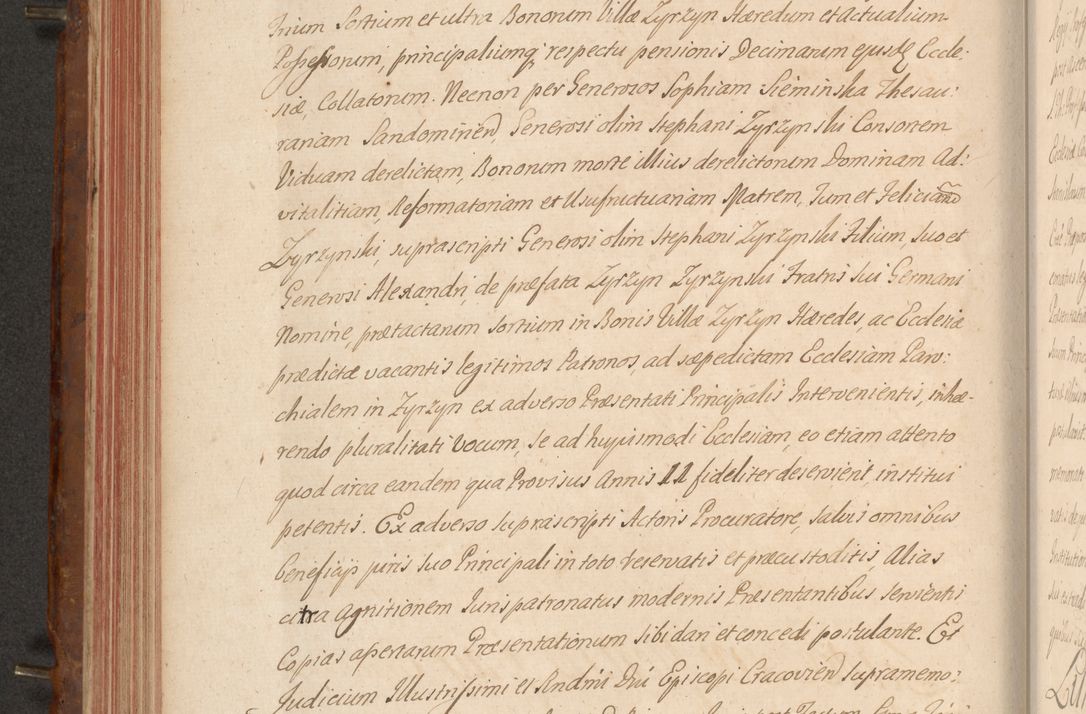 Trium Sortium et ultra Bonorum Villæ Zyrzyn Hæredum et Actualium
Possessorum, principaliumq respectu pensionis Decimarum ejusd Eccle:
siæ, Collatorum. Necnon per Generosos Sophiam Sieminska Thesau:
rariam Sandomirien, Generosi olim Stephani Zyrzynski Consortem
Viduam derelictam, Bonorum morte illius derelictorum Dominam Ad:
vitalitiam, Reformatoriam et Usufructuariam Matrem, Tum et Felician
Zyrzynski, suprascripti Generosi olim Stephani Zyrzynski Filium, suo et
Generosi Alexandri, de præfata Zyrzyn Zyrzynski Fratris sui Germani
Nomine, prætactarum Sortium in Bonis Villæ Zyrzyn Hæredes, ac Ecclesiæ
prædictæ vacantis legitimos Patronos, ad sæpedictam Ecclesiam Paro:
chialem in Zyrzyn ex adverso Præsentati Principalis Intervenientis, inhæ-
rendo pluralitati Vocum, se ad hujusmodi Ecclesiam, eo etiam attento
quod circa eandem qua Provisus Annis 11 fideliter deservient, institui
petentis. Ex adverso suprascripti Actoris Procuratore, salvis omnibus
beneficijs juris suo Principali in toto reservatis et præcustoditis, Alias
citra agnitionem Jurispatronatus modernis Præsentantibus servientis
Copias apertarum Præsentationum sibi dari et concedi postulante. Et
Judicium Illustrissimi et Rndmi Dni Episcopi Cracovien supramemo: